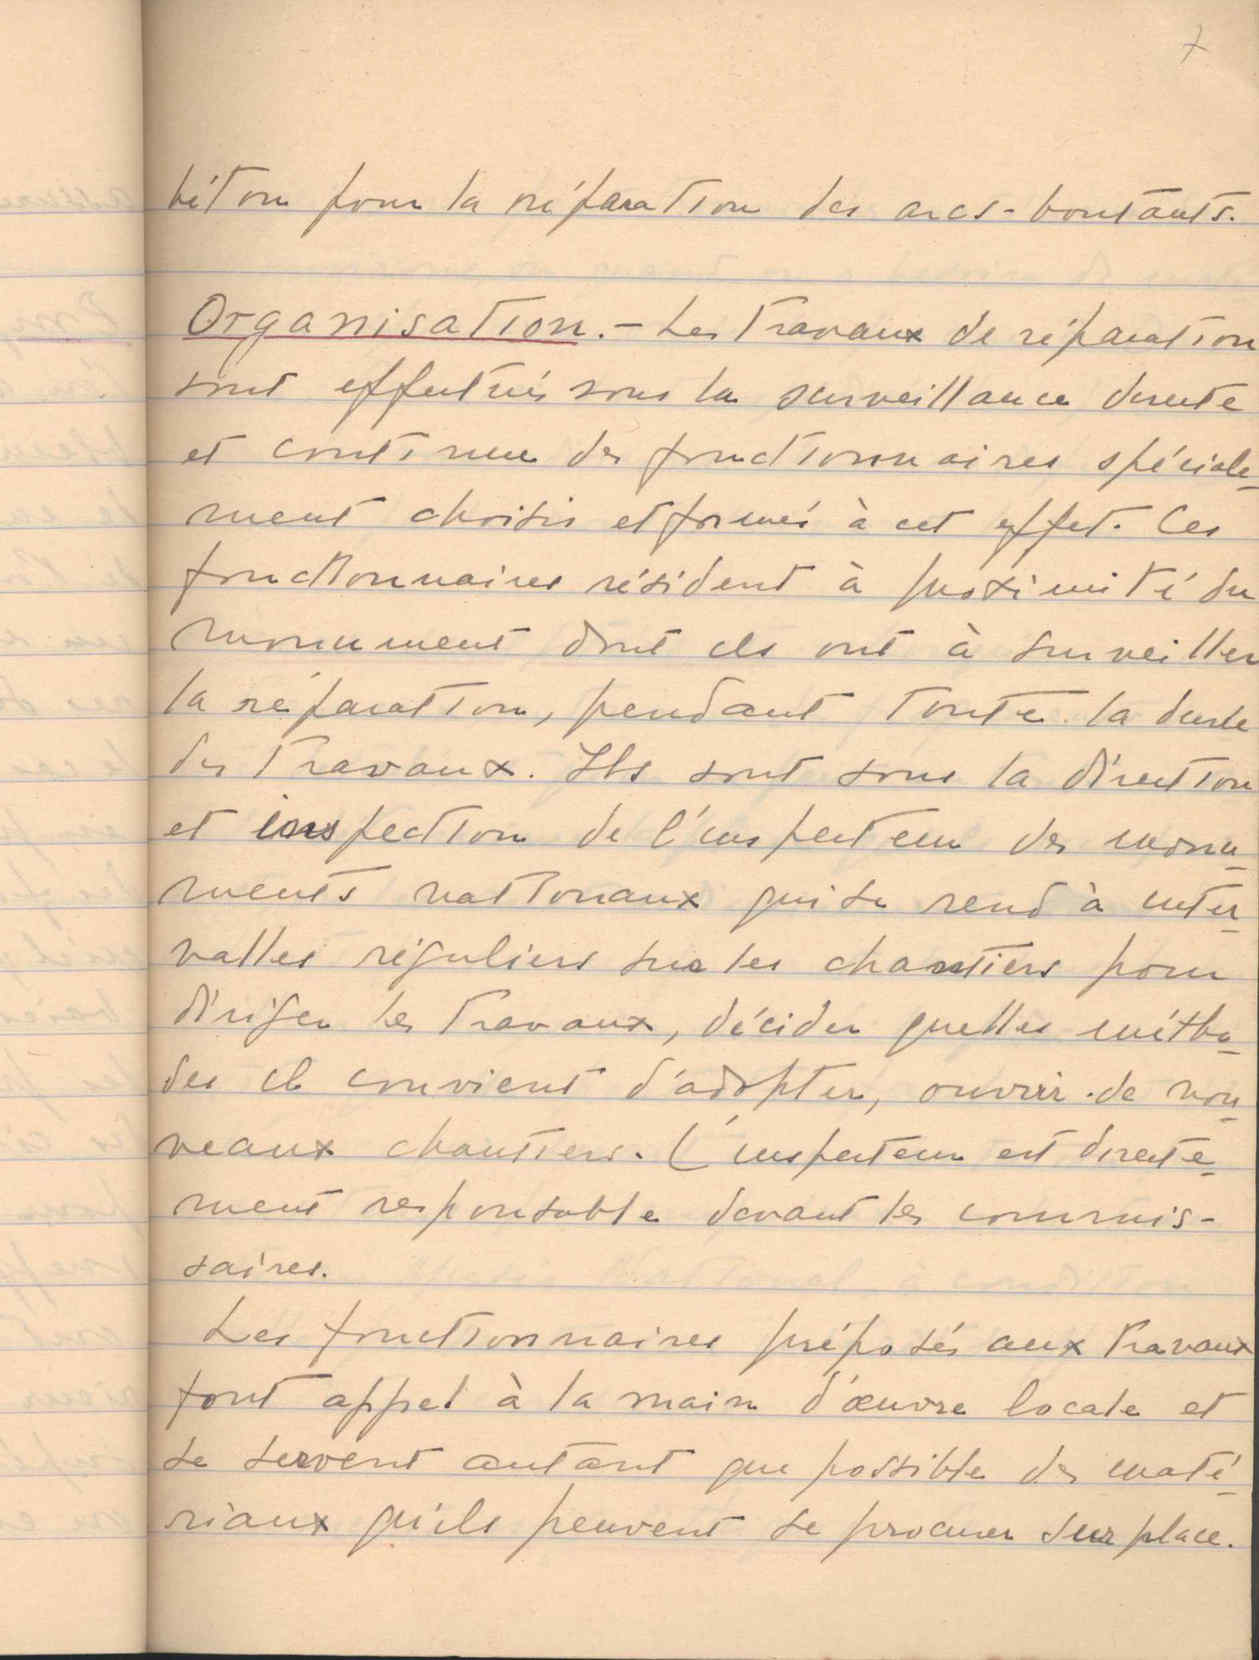 7
béton pour la réparation des arcs-boutants.
Organisation.- Les travaux de réparation
sont effectués sous la surveillance directe
et continue des fonctionnaires spéciale-
ment choisis et formés à cet effet. Ces
fonctionnaires résident à proximité du
monument dont ils ont à surveiller
la réparation, pendant toute la durée
des travaux. Ils sont sous la direction
et inspection de l'inspecteur des monu-
ments nationaux qui se rend à inter-
valles réguliers sur les chantiers pour
diriger les travaux, décider quelles métho-
des il convient d'adopter, ouvrir de nou-
veaux chantiers. L'inspecteur est directe-
ment responsable devant les commis-
saires.
Les fonctionnaires préposés aux travaux
font appel à la main d'œuvre locale et
se servent autant que possible des maté-
riaux qu'ils peuvent se procurer sur place.